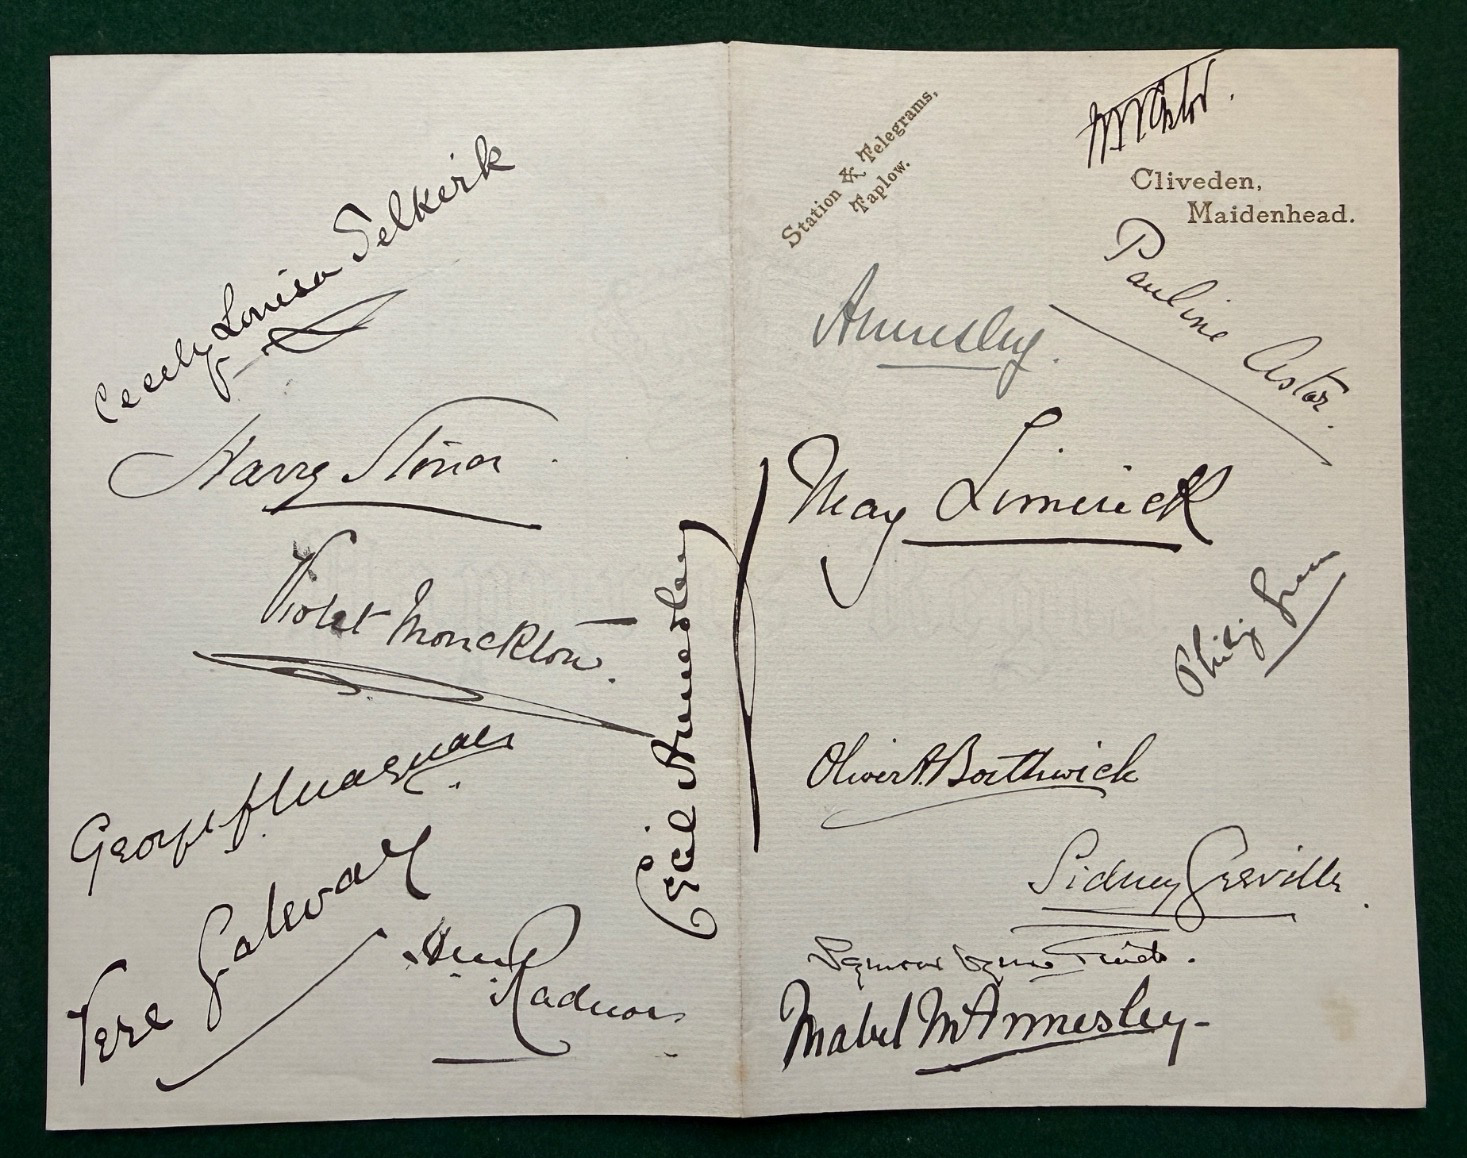 Cecely Louisa Selkirk
Harry Stonor
Violet Monckton
George
Vere Galway
Radnor
Cecil Annesley
Station & Telegrams,
Taplow.
W W Astor.
Cliveden,
Maidenhead.
Pauline Astor.
Annesley.
May Limerick
Philip Green
Oliver A. Borthwick
Sidney Greville.
Seymour
Mabel M Annesley